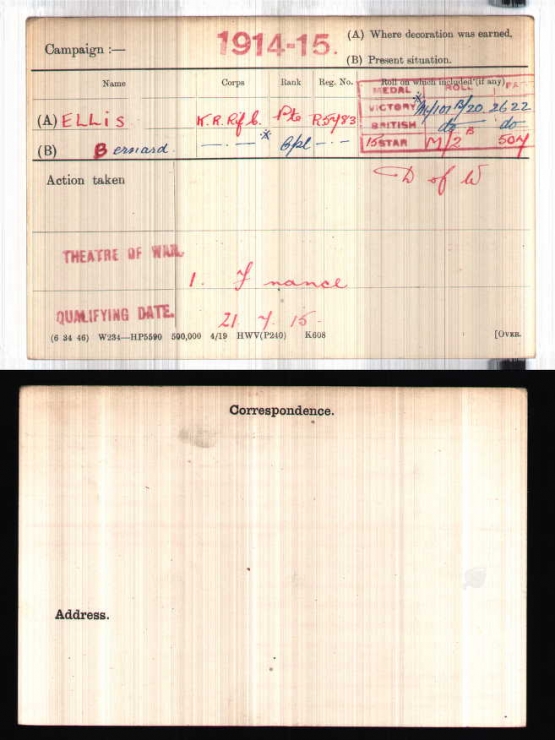 Campaign :— 1914-15. (A) Where decoration was earned.
(B) Present situation.
Name Corps Rank Reg. No. Roll on which included (if any)
MEDAL ROLL
(A) ELLIS K.R.Rif.C. Pte R5783 VICTORY 2622
(B) Bernard —·— * Cpl —·— BRITISH do do
15 STAR M/2 B 504
Action taken D of W
THEATRE OF WAR. 1. France
QUALIFYING DATE. 21 7. 15
(6 34 46) W234—HP5590 500,000 4/19 HWV(P240) K608 [Over.
Correspondence.
Address.